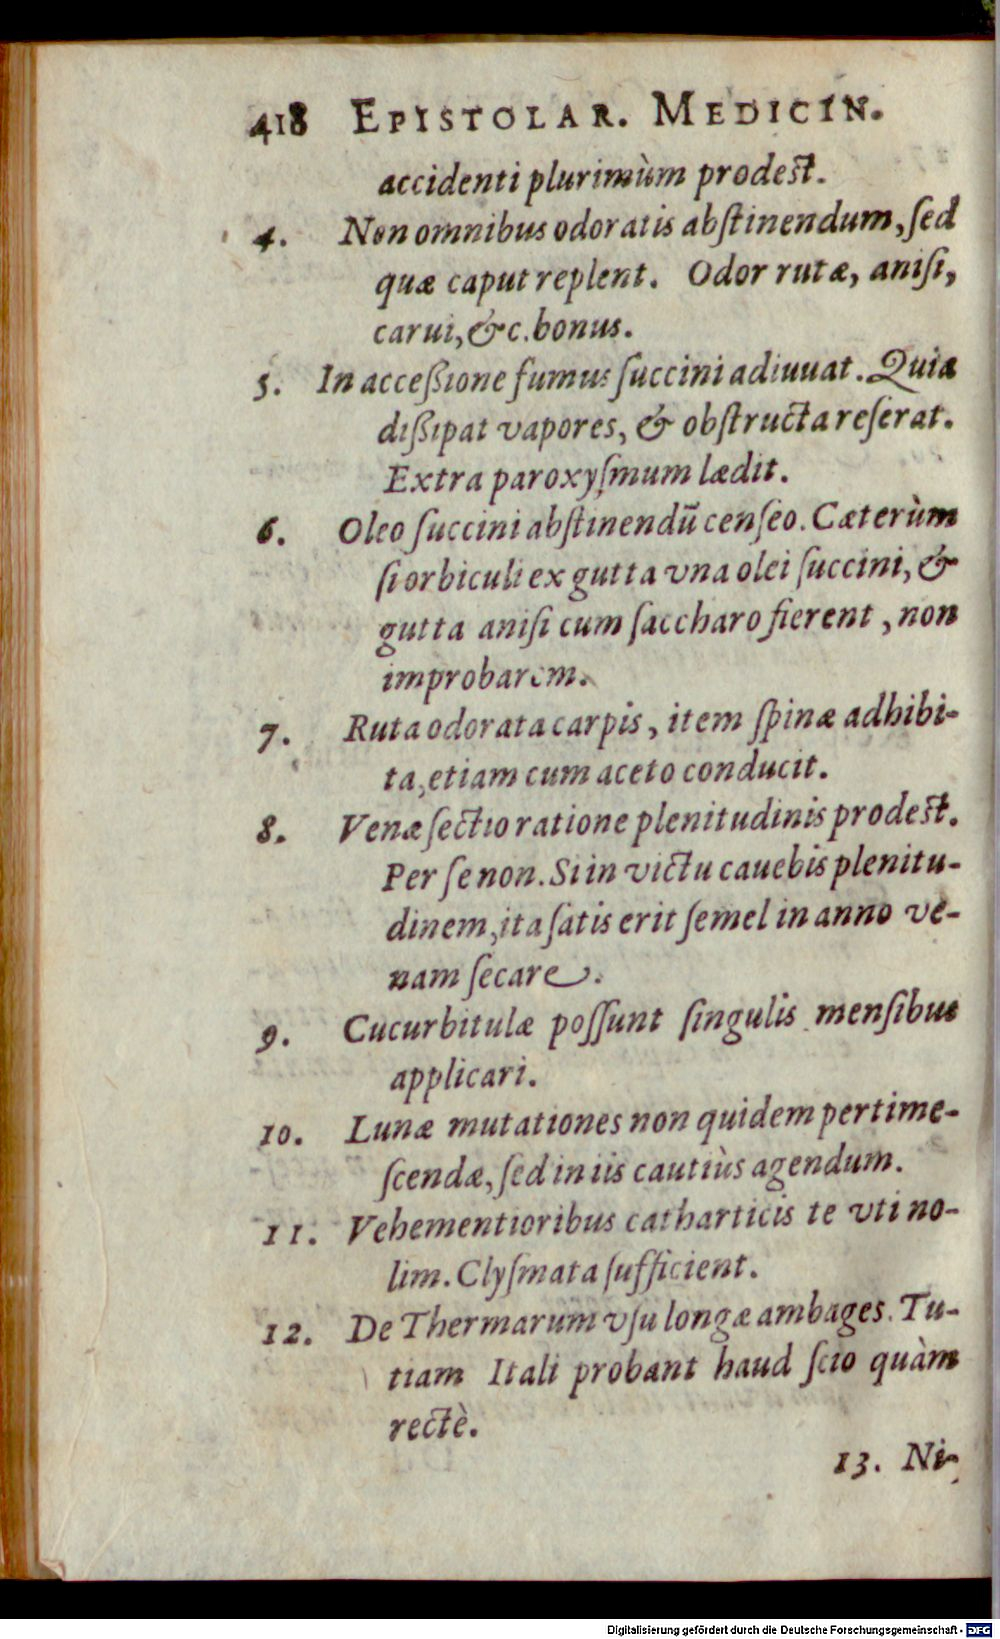 418 EPISTOLAR. MEDICIN.
accidenti plurimùm prodest.
4. Non omnibus odoratis abſtinendum, ſed
quæ caput replent. Odor rutæ, aniſi,
carui, &c. bonus.
5. In acceßione fumus ſuccini adiuuat. Quia
dißipat vapores, & obſtructa reſerat.
Extra paroxyſmum lædit.
6. Oleo ſuccini abſtinendū cenſeo. Cæterùm
ſi orbiculi ex gutta vna olei ſuccini, &
gutta aniſi cum ſaccharo fierent, non
improbarem.
7. Ruta odorata carpis, item ſpinæ adhibi-
ta, etiam cum aceto conducit.
8. Venæ ſectio ratione plenitudinis prodest.
Per ſe non. Si in victu cauebis plenitu-
dinem, ita ſatis erit ſemel in anno ve-
nam ſecare.
9. Cucurbitulæ poſſunt ſingulis menſibus
applicari.
10. Lunæ mutationes non quidem pertime-
ſcendæ, ſed in iis cautiùs agendum.
11. Vehementioribus catharticis te vti no-
lim. Clyſmata ſufficient.
12. De Thermarum vſu longæ ambages. Tu-
tiam Itali probant haud ſcio quàm
rectè.
13. Ni-
Digitalisierung gefördert durch die Deutsche Forschungsgemeinschaft - DFG